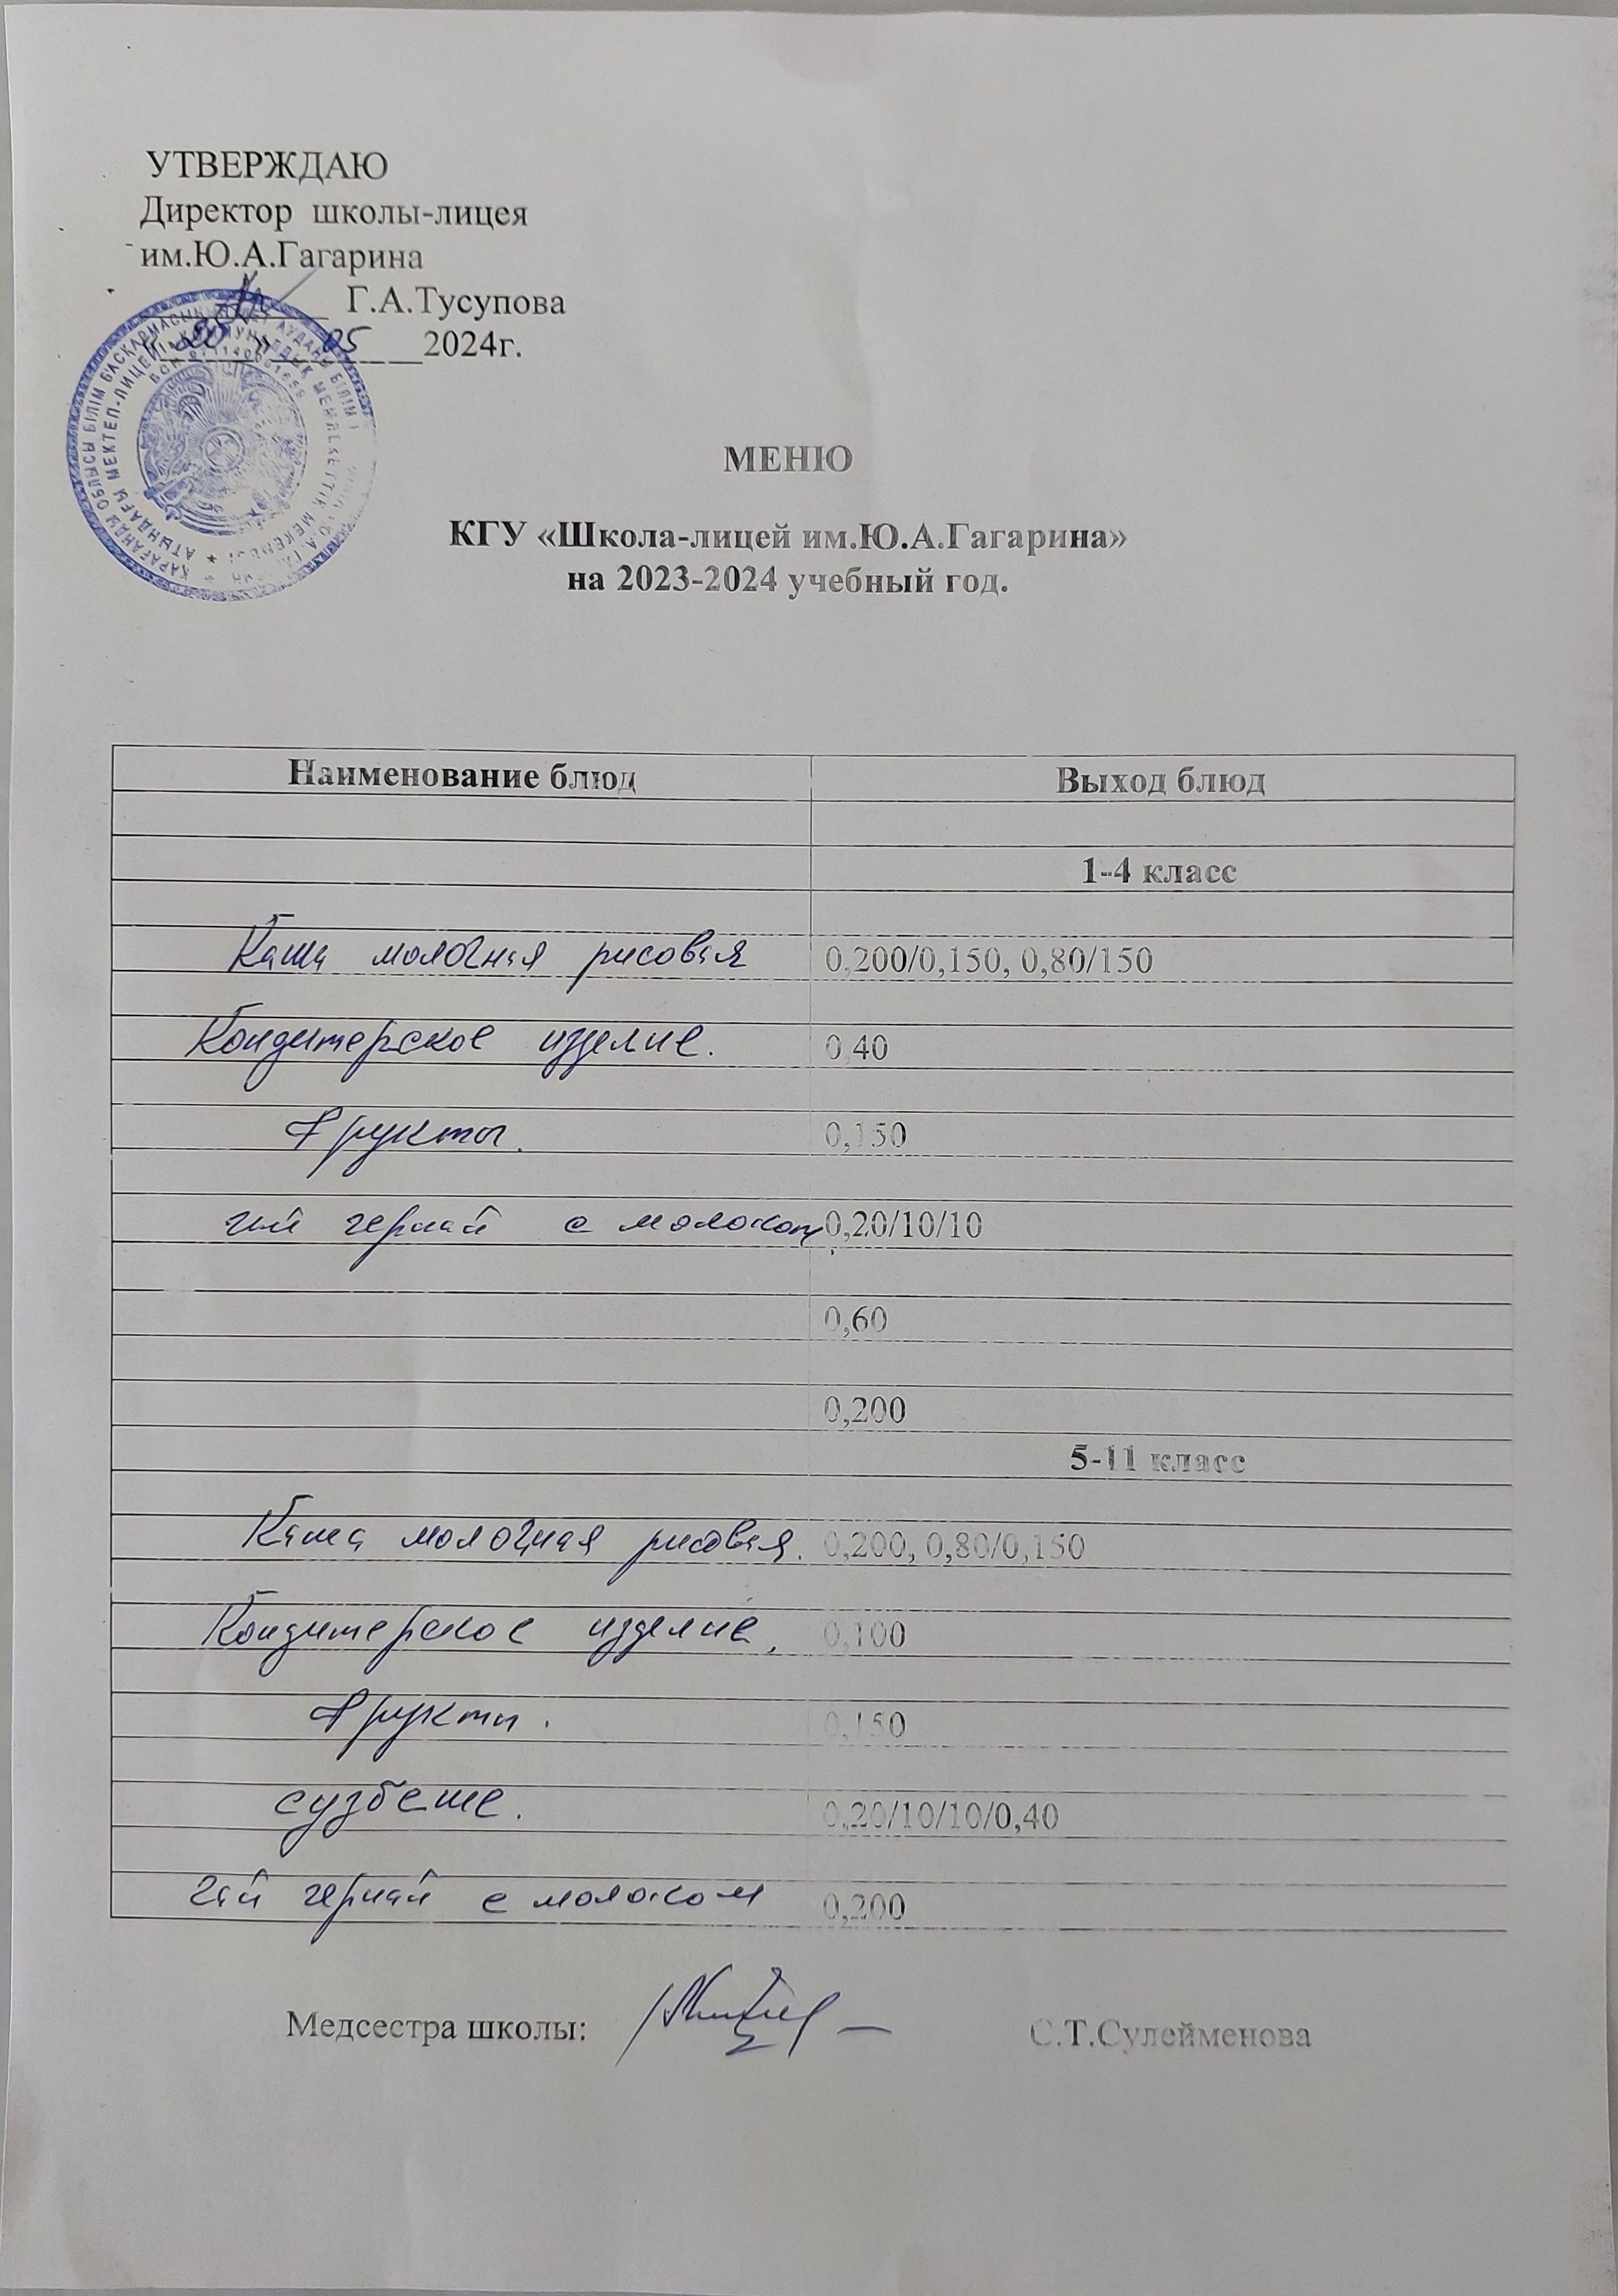 УТВЕРЖДАЮ
Директор школы-лицея
им.Ю.А.Гагарина
Г.А.Тусупова
«20» 05 2024г.
МЕНЮ
КГУ «Школа-лицей им.Ю.А.Гагарина»
на 2023-2024 учебный год.
Наименование блюд Выход блюд
1-4 класс
Каша молочная рисовая 0,200/0,150, 0,80/150
Кондитерское изделие. 0,40
Фрукты. 0,150
чай черный с молоком 0,20/10/10
0,60
0,200
5-11 класс
Каша молочная рисовая. 0,200, 0,80/0,150
Кондитерское изделие. 0,100
Фрукты. 0,150
сузбеше. 0,20/10/10/0,40
Чай черный с молоком 0,200
Медсестра школы: С.Т.Сулейменова